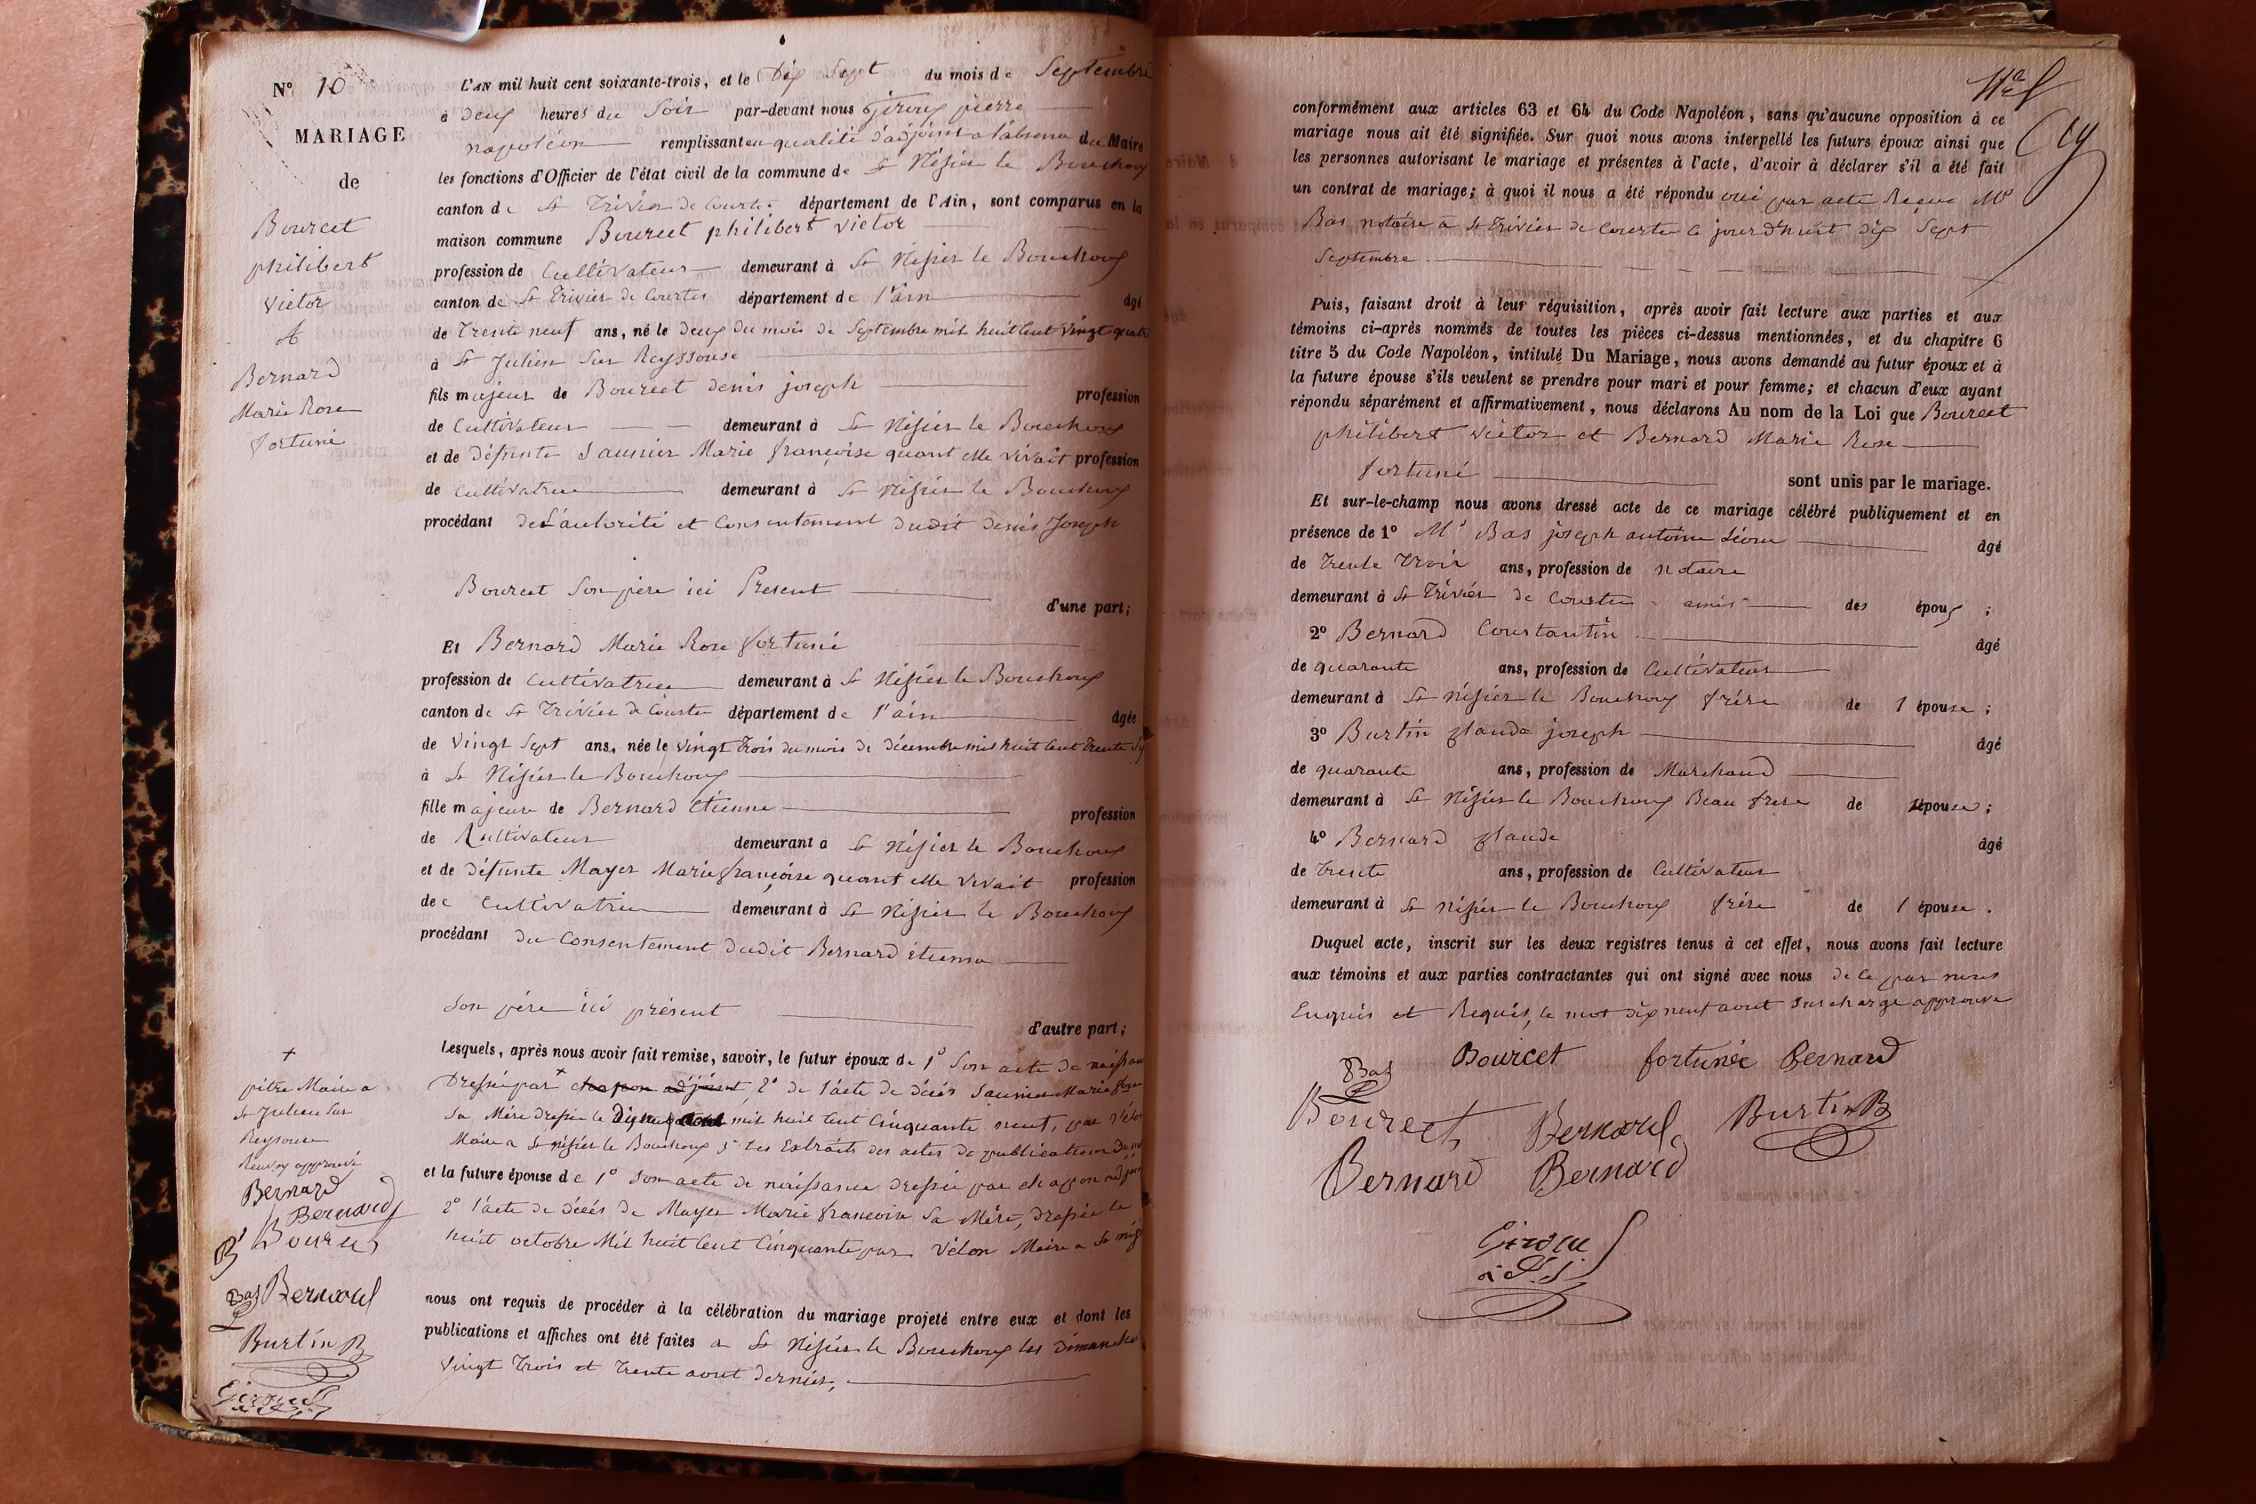 N° 10
MARIAGE
de
Bourcet
philibert
victor
&
Bernard
Marie Rose
fortuné
L'AN mil huit cent soixante-trois, et le Dix Sept du mois de Septembre
à deux heures du Soir par-devant nous Giroux pierre
napoléon remplissant en qualité d'adjoint a l'absence du Maire
les fonctions d'Officier de l'état civil de la commune de St Nizier le Bouchoux
canton de St Trivier de Courtes département de l'Ain, sont comparus en la
maison commune Bourcet philibert victor
profession de Cultivateur demeurant à St Nizier le Bouchoux
canton de St Trivier de Courtes département de l'ain âgé
de Trente neuf ans, né le deux du mois de Septembre mil huit Cent vingt quatre
à St Julien Sur Reyssouse
fils majeur de Bourcet denis joseph profession
de Cultivateur demeurant à St Nizier le Bouchoux
et de défunte Saunier Marie françoise quant elle vivait profession
de Cultivatrice demeurant à St Nizier le Bouchoux
procédant de L'autorité et Consentement dudit denis Joseph
Bourcet Son père ici Présent d'une part;
Et Bernard Marie Rose fortuné
profession de Cultivatrice demeurant à St Nizier le Bouchoux
canton de St Trivier de Courtes département de l'ain âgée
de vingt Sept ans, née le vingt trois du mois de décembre mil huit Cent Trente Six
à St Nizier le Bouchoux
fille majeure de Bernard étienne profession
de Cultivateur demeurant à St Nizier le Bouchoux
et de défunte Mayer Marie françoise quant elle vivait profession
de Cultivatrice demeurant à St Nizier le Bouchoux
procédant du Consentement dudit Bernard étienne
Son père ici présent d'autre part;
Lesquels, après nous avoir fait remise, savoir, le futur époux de 1° Son acte de naissance
Dressé par + chapon adjoint, 2° de l'acte de décès Saunier Marie
Sa Mère dressé le Dix neuf aout mil huit Cent Cinquante par vélon
Maire a St Nizier le Bouchoux 3° les Extraits des actes de publication
et la future épouse de 1° Son acte de naissance dressé par chapon adjoint
2° l'acte de décès de Mayer Marie francoise Sa Mère, dressée le
huit octobre Mil huit Cent Cinquante par vélon Maire a St
nous ont requis de procéder à la célébration du mariage projeté entre eux et dont les
publications et affiches ont été faites a St Nizier le Bouchoux les dimanches
vingt Trois et Trente aout dernier,
+
pitre Maire a
St Julien Sur
Reyssouse
Renvoy approuvé
Bernard
Bernard
Bourcet
Bas
Bernard
Burtin B
Giroux
conformément aux articles 63 et 64 du Code Napoléon, sans qu'aucune opposition à ce
mariage nous ait été signifiée. Sur quoi nous avons interpellé les futurs époux ainsi que
les personnes autorisant le mariage et présentes à l'acte, d'avoir à déclarer s'il a été fait
un contrat de mariage; à quoi il nous a été répondu oui par acte Reçue Me
Bas notaire a St Trivier de Courtes le jourd'huit dix Sept
Septembre
Puis, faisant droit à leur réquisition, après avoir fait lecture aux parties et aux
témoins ci-après nommés de toutes les pièces ci-dessus mentionnées, et du chapitre 6
titre 5 du Code Napoléon, intitulé Du Mariage, nous avons demandé au futur époux et à
la future épouse s'ils veulent se prendre pour mari et pour femme; et chacun d'eux ayant
répondu séparément et affirmativement, nous déclarons Au nom de la Loi que Bourcet
philibert victor et Bernard Marie Rose
fortuné sont unis par le mariage.
Et sur-le-champ nous avons dressé acte de ce mariage célébré publiquement et en
présence de 1° Mr Bas joseph antoine Léon âgé
de Trente Trois ans, profession de notaire
demeurant à St Trivier de Courtes amis des époux ;
2° Bernard Constantin âgé
de quarante ans, profession de Cultivateur
demeurant à St Nizier le Bouchoux frère de l épouse ;
3° Burtin glaude joseph âgé
de quarante ans, profession de Marchand
demeurant à St Nizier le Bouchoux Beau frere de l épouse ;
4° Bernard glaude âgé
de Trente ans, profession de Cultivateur
demeurant à St Nizier le Bouchoux frére de l épouse .
Duquel acte, inscrit sur les deux registres tenus à cet effet, nous avons fait lecture
aux témoins et aux parties contractantes qui ont signé avec nous de ce par nous
Enquis et Requis, le mot dix neuf aout surcharge approuvé
Bas Bourcet fortunée Bernard
Bourcet Bernard Burtin B
Bernard Bernard
Giroux